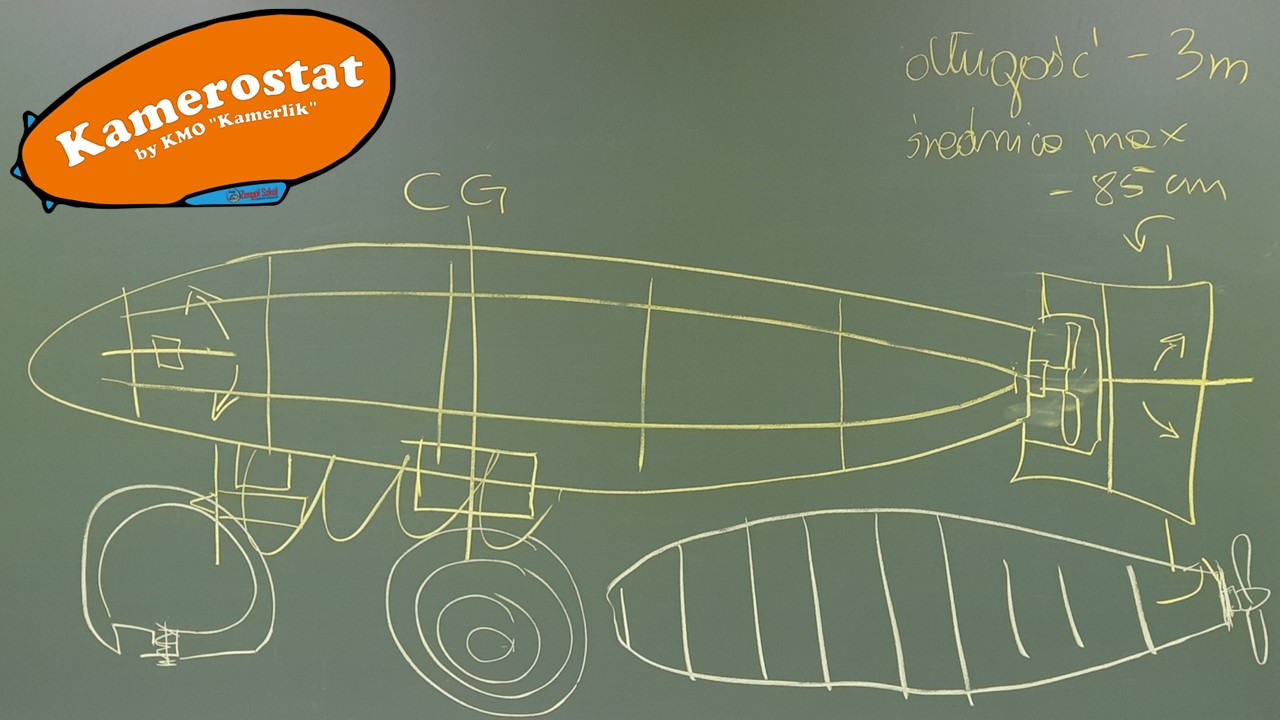 Kamerostat
by KMO "Kamerlik"
długość - 3m
średnica max
- 85 cm
CG